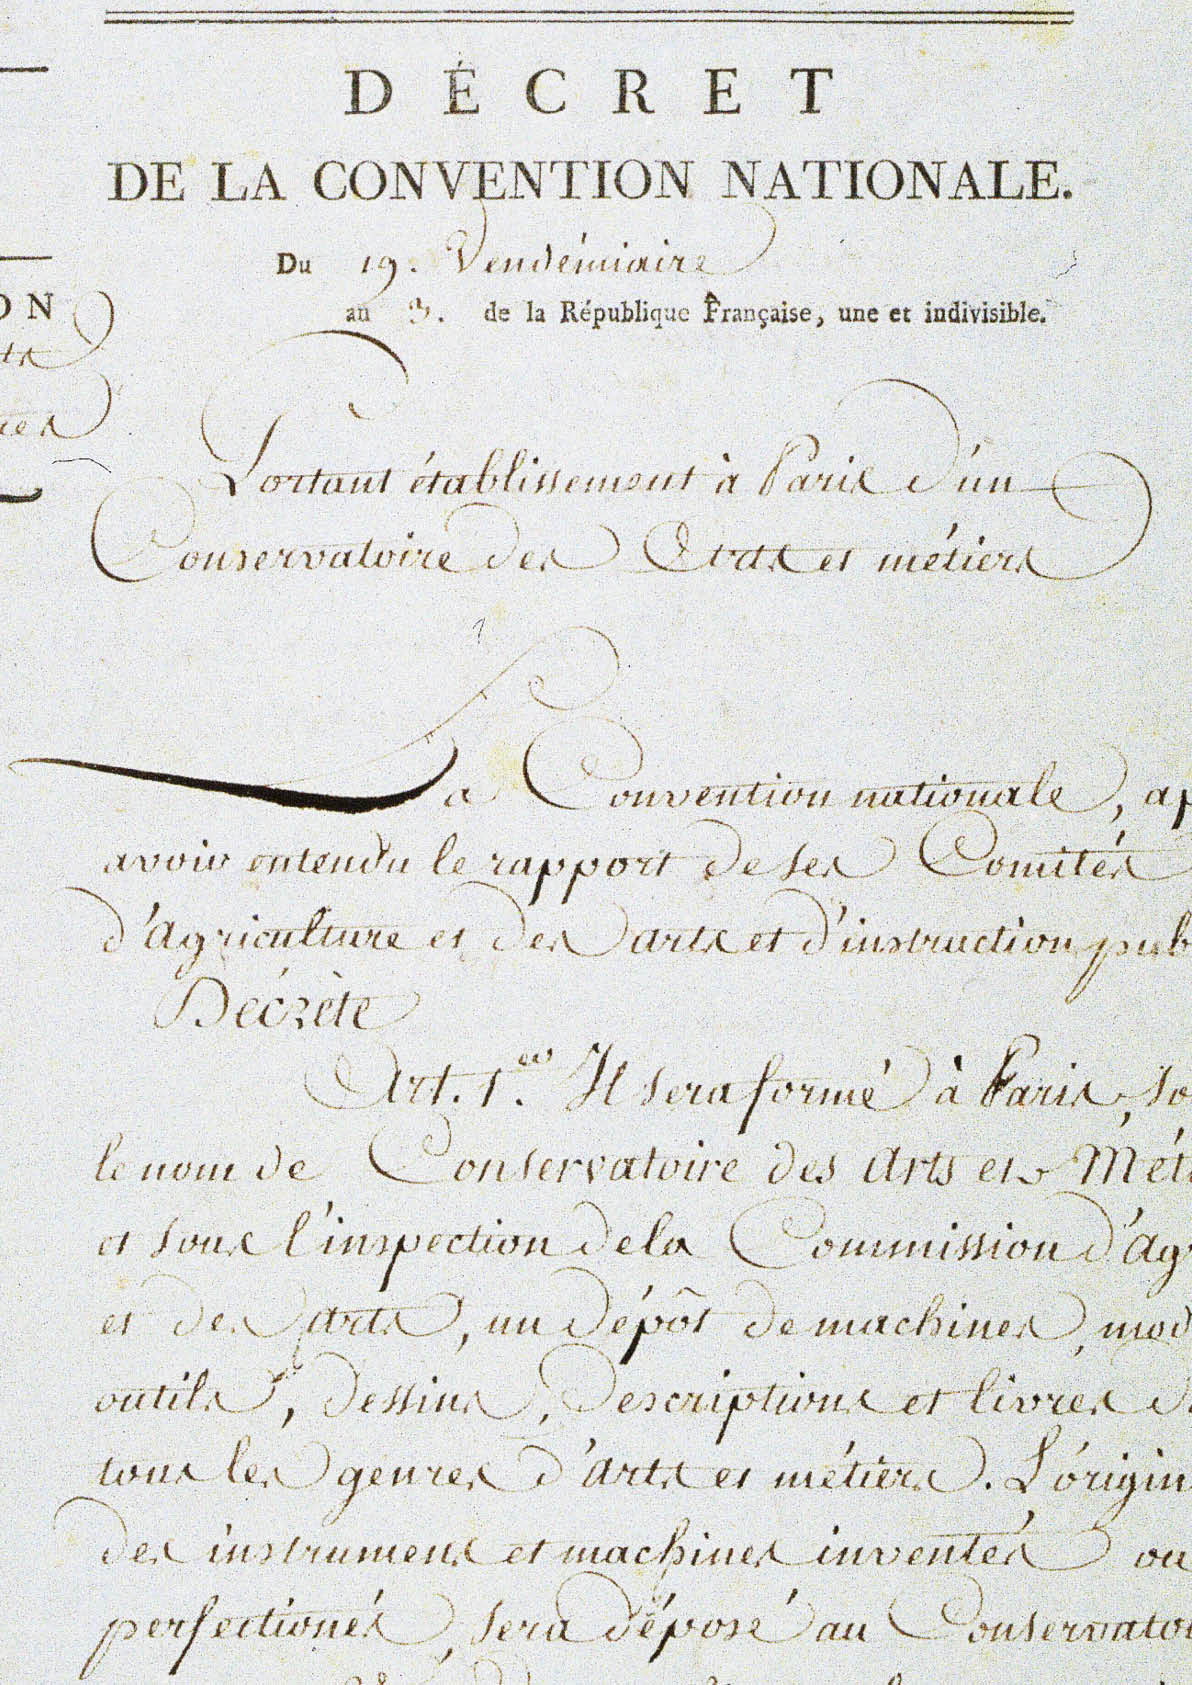 DÉCRET
DE LA CONVENTION NATIONALE.
Du 19. Vendémiaire
an 3. de la République Française, une et indivisible.
ON
Portant établissement à Paris d'un
Conservatoire des Arts et métiers
La Convention nationale, ap
avoir entendu le rapport de ses Comités
d'Agriculture et des arts et d'instruction pub
Décrète
Art. 1.er Il sera formé à Paris, so
le nom de Conservatoire des Arts et Mét
et sous l'inspection de la Commission d'Ag
et des arts, un dépôt de machines, mod
outils, dessins, descriptions et livres d
tous les genres d'arts et métiers. L'origin
des instrumens et machines inventés ou
perfectionés, sera déposé au Conservatoi